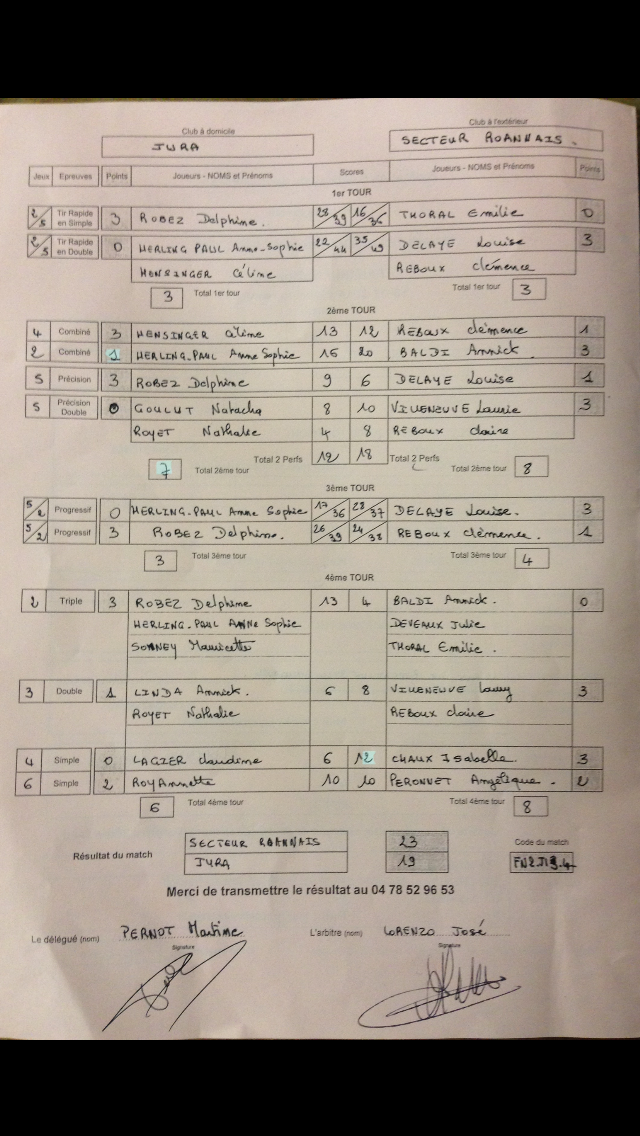 Club à domicile Club à l'extérieur
JURA SECTEUR ROANNAIS.
Jeux Epreuves Points Joueurs - NOMS et Prénoms Scores Joueurs - NOMS et Prénoms Points
1er TOUR
2/5 Tir Rapide en Simple 3 ROBEZ Delphine. 28/39 16/36 THORAL Emilie 0
2/5 Tir Rapide en Double 0 HERLING PAUL Anne-Sophie 22/44 35/49 DELAYE Louise 3
HENSINGER Céline REBOUX clémence
3 Total 1er tour Total 1er tour 3
2ème TOUR
4 Combiné 3 HENSINGER céline 13 12 REBOUX clémence 1
2 Combiné 1 HERLING-PAUL Anne Sophie 15 20 BALDI Annick. 3
5 Précision 3 ROBEZ Delphine 9 6 DELAYE Louise 1
5 Précision Double 0 GOULUT Natacha 8 10 VILLENEUVE Laurie 3
ROYET Nathalie 4 8 REBOUX claire
Total 2 Perfs 12 18 Total 2 Perfs
7 Total 2ème tour Total 2ème tour 8
3ème TOUR
5/2 Progressif 0 HERLING-PAUL Anne Sophie 17/36 28/37 DELAYE Louise. 3
5/2 Progressif 3 ROBEZ Delphine. 26/39 24/38 REBOUX clémence. 1
3 Total 3ème tour Total 3ème tour 4
4ème TOUR
2 Triple 3 ROBEZ Delphine 13 4 BALDI Annick. 0
HERLING-PAUL ANNE Sophie DEVEAUX Julie
SONNEY Mauricette THORAL Emilie.
3 Double 1 LINDA Annick. 6 8 VILLENEUVE 3
ROYET Nathalie REBOUX claire
4 Simple 0 LAGIER claudine 6 12 CHAUX Isabelle. 3
6 Simple 2 ROY Annette 10 10 PERONNET Angélique. 2
6 Total 4ème tour Total 4ème tour 8
Résultat du match SECTEUR ROANNAIS 23 Code du match
JURA 19
Merci de transmettre le résultat au 04 78 52 96 53
Le délégué (nom) PERNOT Martine L'arbitre (nom) LORENZO José
Signature Signature